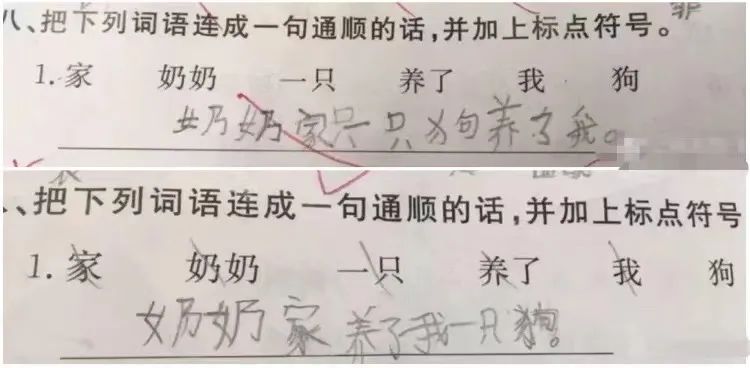 八、把下列词语连成一句通顺的话,并加上标点符号。
1. 家 奶奶 一只 养了 我 狗
奶奶家只一只狗养了我。
、把下列词语连成一句通顺的话,并加上标点符号
1. 家 奶奶 一只 养了 我 狗
奶奶家养了我一只狗。